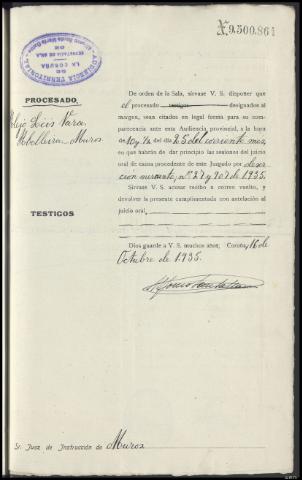 N.9.500.861
AUDIENCIA TERRITORIAL
DE
LA CORUÑA
SECRETARIA DE SALA
DE
PROCESADO
Luis Vara
Abelleira_Muros
TESTIGOS
De orden de la Sala, sírvase V. S. disponer que
el procesado testigos designados al
margen, sean citados en legal forma para su com-
parecencia ante esta Audiencia provincial, a la hora
de 10 y ½ del día 25 del corriente mes,
en que habrán de dar principio las sesiones del juicio
oral de causa procedente de ese Juzgado por deser-
ción mercante, nº 27 y 707 de 1935.
Sírvase V. S. acusar recibo a correo vuelto, y
devolver la presente cumplimentada con antelación al
juicio oral
Dios guarde a V. S. muchos años; Coruña, 16 de
Octubre de 1.935.
Sr. Juez de Instrucción de Muros